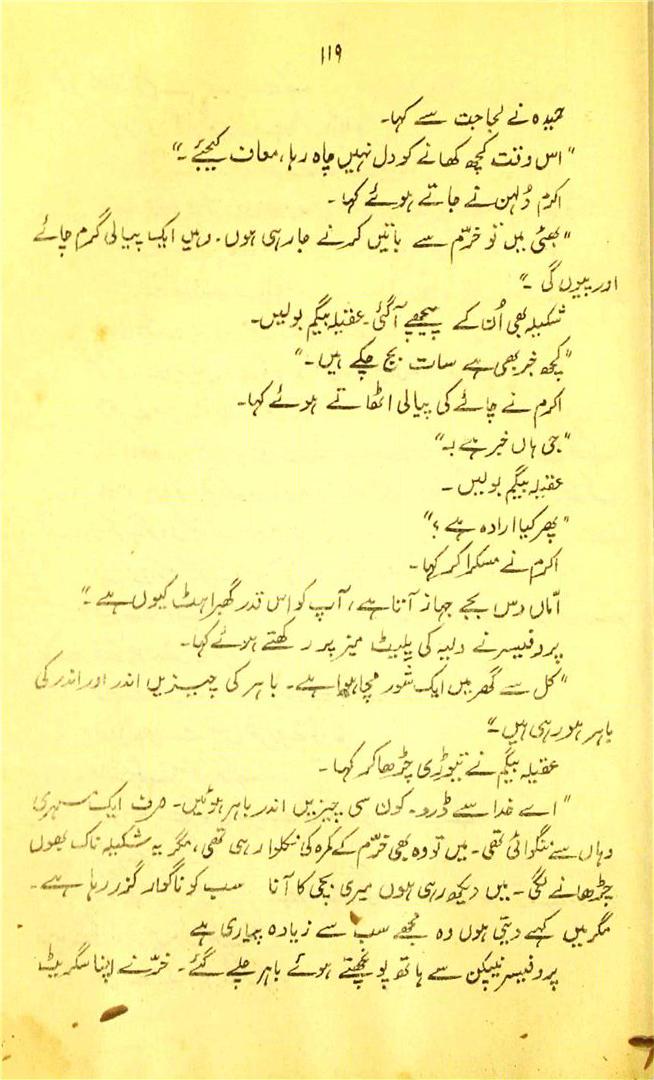 ۱۱۹
حمیدہ نے لجاجت سے کہا۔
"اس وقت کچھ کھانے کو دل نہیں چاہ رہا، معاف کیجئے۔"
اکرم دُلہن نے جاتے ہوئے کہا۔
"بھئی میں تو خرّم سے باتیں کرنے جا رہی ہوں۔ وہیں ایک پیالی گرم چائے
اور پیوں گی۔"
شکیلہ بھی اُن کے پیچھے آ گئی۔ عقیلہ بیگم بولیں۔
"کچھ خبر بھی ہے سات بج چکے ہیں۔"
اکرم نے چائے کی پیالی اٹھاتے ہوئے کہا۔
"جی ہاں خبر ہے۔"
عقیلہ بیگم بولیں۔
"پھر کیا ارادہ ہے؟"
اکرم نے مسکرا کر کہا۔
امّاں دس بجے جہاز آتا ہے، آپ کو اس قدر گھبراہٹ کیوں ہے۔"
پروفیسر نے دلیہ کی پلیٹ میز پر رکھتے ہوئے کہا۔
"کل سے گھر میں ایک شور مچا ہوا ہے۔ باہر کی چیزیں اندر اور اندر کی
باہر ہو رہی ہیں۔"
عقیلہ بیگم نے تیوڑی چڑھا کر کہا۔
"اے خدا سے ڈرو۔ کون سی چیزیں اندر باہر ہوئیں۔ صرف ایک مسہری
وہاں سے منگوائی تھی۔ میں تو وہ بھی خرّم کے کمرہ کی نکلوا رہی تھی، مگر یہ شکیلہ ناک بھوں
چڑھانے لگی۔ میں دیکھ رہی ہوں میری بچی کا آنا سب کو ناگوار گزر رہا ہے۔
مگر میں کہے دیتی ہوں وہ مجھے سب سے زیادہ پیاری ہے
پروفیسر نیپکن سے ہاتھ پونچھتے ہوئے باہر چلے گئے۔ خرّم نے اپنا سگریٹ